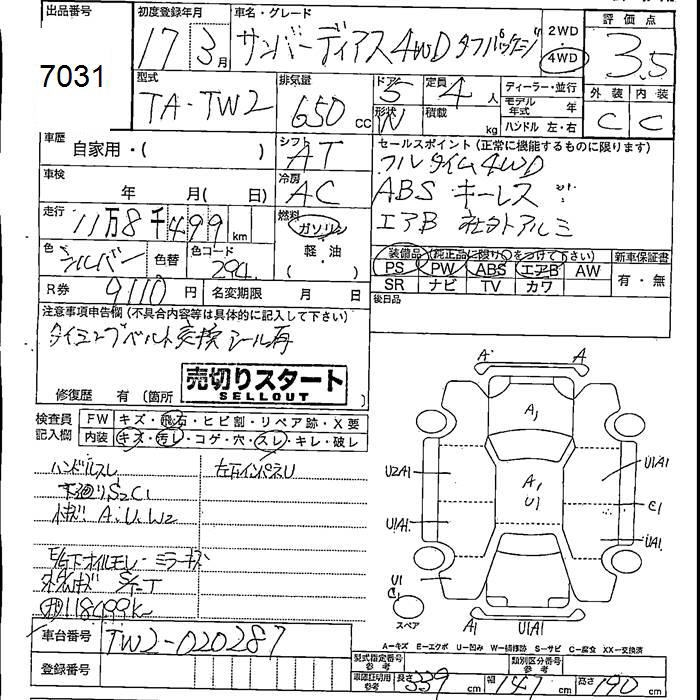 出品番号
7031
初度登録年月
17 3月
車名・グレード
サンバーディアス4WD タフパッケージ
2WD
・
4WD
評価点
3.5
型式
TA-TW2
排気量
650 cc
ドア 5
定員 4人
形状 N
積載 kg
ディーラー・並行
モデル年式 年
ハンドル 左・右
外装 内装
C C
車歴
自家用・( )
シフト AT
冷房 AC
車検
年 月( 日)
走行
11万8千499km
燃料
ガソリン
軽・油
( )
色 シルバー
色替
色コード 294
R券 9110円
名変期限 月 日
セールスポイント(正常に機能するものに限ります)
フルタイム4WD
ABS キーレス
エアB 社外アルミ
装備品 (純正品に限り○をつけて下さい)
新車保証書
PS PW ABS エアB AW
SR ナビ TV カワ
有・無
後日品
注意事項申告欄(不具合内容等は具体的に記入して下さい)
タイミングベルト交換シール有
売切りスタート
SELLOUT
修復歴 有 (箇所
検査員記入欄
FW キズ・飛石・ヒビ割・リペア跡・X要
内装 キズ・汚レ・コゲ・穴・スレ・キレ・破レ
ハンドルスレ
左右インパネU
下廻りS2C1
小キズ A.U.W2
E/G下オイルモレ・ミラーキズ
118499K
車台番号 TW2-020287
登録番号
A' A
A1
A1
U1
U2A1
U1A1
U1A1
C1
U1A1
U1
C1
スペア
A1 U1A1
A…キズ E…エクボ U…凹み W…補修跡 S…サビ C…腐食 XX…交換済
型式指定番号 参考
類別区分番号 参考
車庫証明用 参考
長さ 339cm
幅 147cm
高さ 190cm